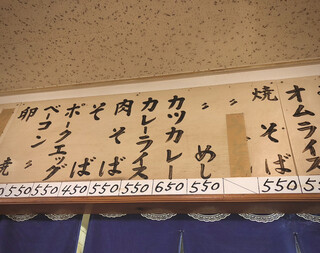 オムライス
5
焼そば
550
〃
〃めし
550
カツカレー
650
カレーライス
550
肉そば
550
そば
450
ポークエッグ
550
ベーコン〃
550
卵〃
焼
0